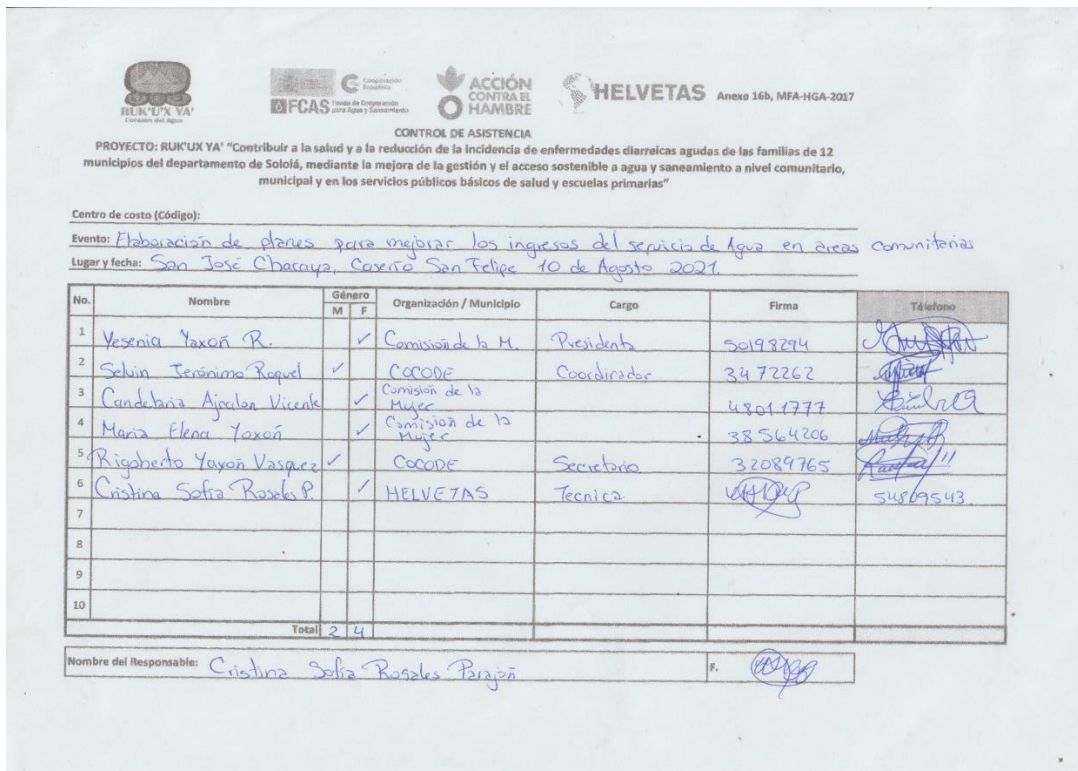 RUK'U'X YA'
Corazón del Agua
Cooperación Española
FCAS Fondo de Cooperación para Agua y Saneamiento
ACCIÓN CONTRA EL HAMBRE
HELVETAS Anexo 16b, MFA-HGA-2017
CONTROL DE ASISTENCIA
PROYECTO: RUK'UX YA' "Contribuir a la salud y a la reducción de la incidencia de enfermedades diarreicas agudas de las familias de 12
municipios del departamento de Sololá, mediante la mejora de la gestión y el acceso sostenible a agua y saneamiento a nivel comunitario,
municipal y en los servicios públicos básicos de salud y escuelas primarias"
Centro de costo (Código):
Evento: Elaboración de planes para mejorar los ingresos del servicio de Agua en areas comunitarias
Lugar y fecha: San José Chacaya, Caserío San Felipe 10 de Agosto 2021.
No. Nombre Género M F Organización / Municipio Cargo Firma Télefono
1 Yesenia Yaxón R. ✓ Comisión de la M. Presidenta 50198294
2 Selvin Jerónimo Roquel ✓ COCODE Coordirador 3472262
3 Candelaria Ajcalon Vicente ✓ Comisión de la Mujer 48011777
4 Maria Elena Yaxón ✓ Comisión de la Mujer 38564206
5 Rigoberto Yaxón Vasquez ✓ COCODE Secretario 32089765
6 Cristina Sofía Rosales P. ✓ HELVETAS Tecnica 54809543
7
8
9
10
Total 2 4
Nombre del Responsable: Cristina Sofía Rosales Parajón F.